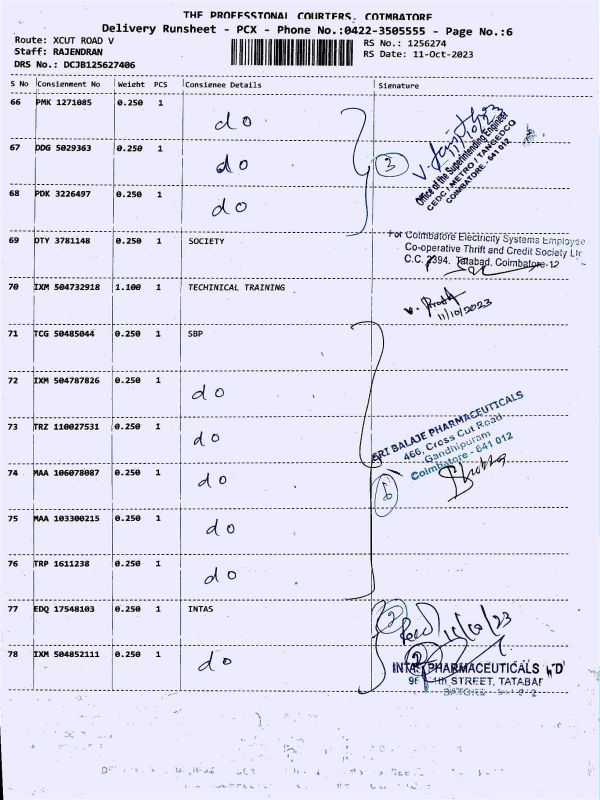 THE PROFESSTONAL COURTERS, COTMBATORE
Delivery Runsheet - PCX - Phone No.:0422-3505555 - Page No.:6
Route: XCUT ROAD V
RS No.: 1256274
Staff: RAJENDRAN
RS Date: 11-Oct-2023
DRS No.: DCJB125627406
S No Consignment No Weight PCS Consignee Details Signature
66 PMK 1271085 0.250 1 do
67 DDG 5029363 0.250 1 do
68 PDK 3226497 0.250 1 do
3
11/10/23
Office of the Superintending Engineer
CEDC / METRO / TANGEDCO
COIMBATORE - 641 012
69 DTY 3781148 0.250 1 SOCIETY
For Coimbatore Electricity Systems Employee
Co-operative Thrift and Credit Society Ltd
C.C. 2394, Tatabad, Coimbatore-12
70 IXM 504732918 1.100 1 TECHINICAL TRAINING
11/10/2023
71 TCG 50485044 0.250 1 SBP
72 IXM 504787826 0.250 1 do
73 TRZ 110027531 0.250 1 do
74 MAA 106078087 0.250 1 do
75 MAA 103300215 0.250 1 do
76 TRP 1611238 0.250 1 do
SRI BALAJE PHARMACEUTICALS
466, Cross Cut Road
Gandhipuram
Coimbatore - 641 012
6
77 EDQ 17548103 0.250 1 INTAS
78 IXM 504852111 0.250 1 do
2
INTAS PHARMACEUTICALS LTD
STREET, TATABAD